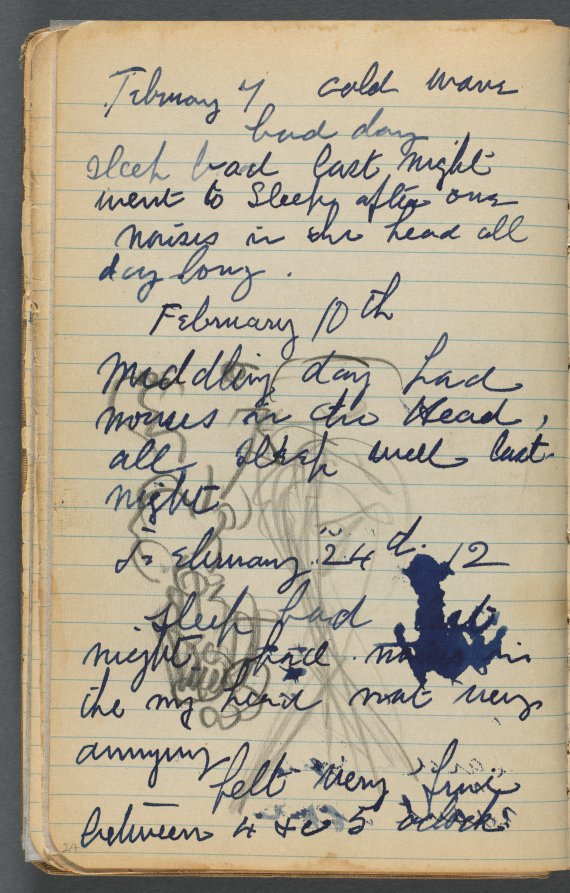 February 7 cold wave
bad day
sleep bad last night
went to sleep after one
noises in the head all
day long.
February 10th
Middling day had
noises in the Head,
all sleep well last
night
February 24 d. 12
sleep bad
night had in
the my head not very
annying
felt very fine
between 4 & 5 oclock
24